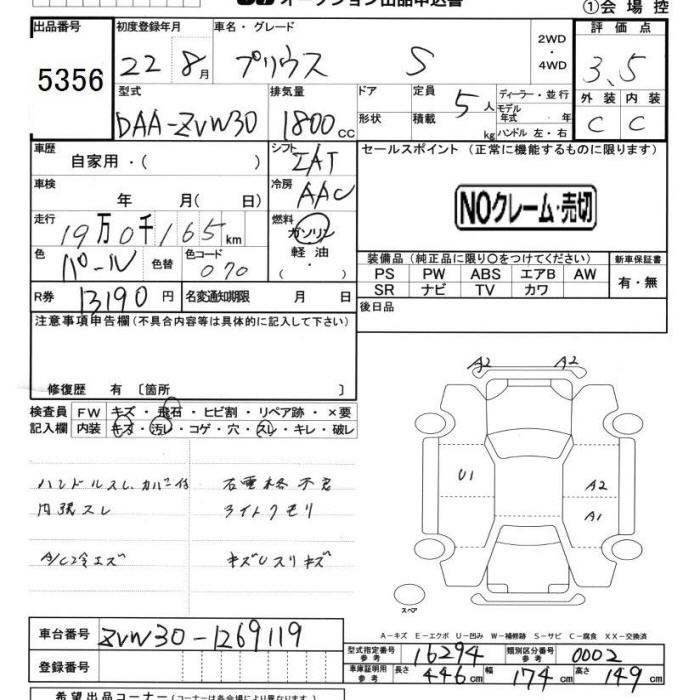 オークション出品申込書
①会場控
出品番号 初度登録年月 車名・グレード 評価点
5356 22 8月 プリウス S 2WD ・ 4WD 3.5
型式 排気量 ドア 定員 5人 ディーラー・並行 外装 内装
DAA-ZVW30 1800cc 形状 積載 kg モデル年式 ・ 年 ハンドル 左・右 C C
車歴 自家用・( ) シフト IAT セールスポイント (正常に機能するものに限ります)
車検 年 月( 日) 冷房 AAC
NOクレーム・売切
走行 19万0千165km 燃料 ガソリン
軽油
・
色 パール 色替 色コード 070
装備品 (純正品に限り〇をつけてください) 新車保証書
PS PW ABS エアB AW 有・無
SR ナビ TV カワ
R券 13190円 名変通知期限 月 日 後日品
注意事項申告欄(不具合内容等は具体的に記入して下さい)
修復歴 有 〔箇所 〕
検査員 FW キズ・飛石・ヒビ割・リペア跡・×要
記入欄 内装 キズ・汚レ・コゲ・穴・スレ・キレ・破レ
A2 A2
ハンドルスレ、カバー付 右電格不良
内張スレ ライトクモリ
A/C冷エズ キズUスリキズ
U1 A2
A1
スペア
A-キズ E-エクボ U-凹み W-補修跡 S-サビ C-腐食 XX-交換済
車台番号 ZVW30-1269119
型式指定番号 参考 16294 類別区分番号 参考 0002
登録番号 車庫証明用 参考 長さ 446cm 幅 174cm 高さ 149cm
希望出品コーナー